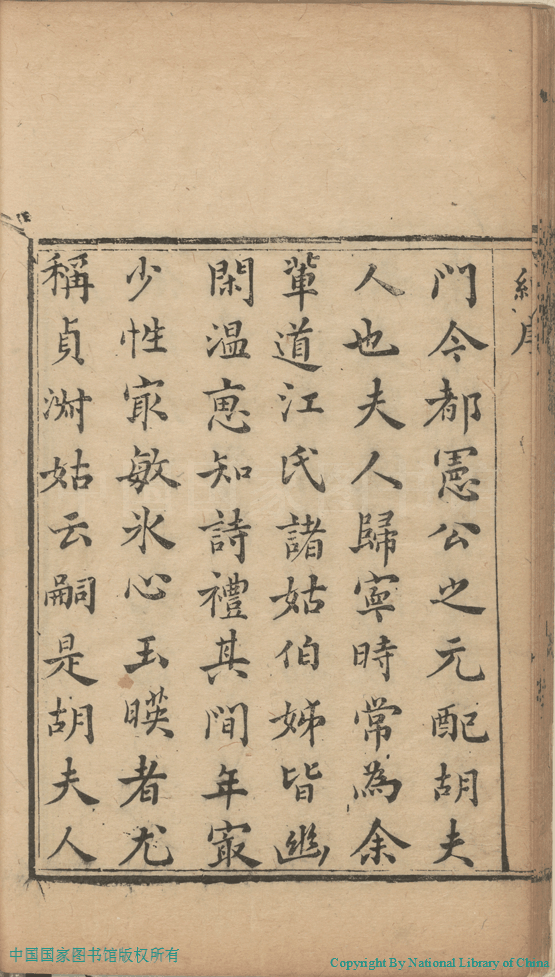 門今都憲公之元配胡夫
人也夫人歸寧時常為余
輩道江氏諸姑伯姊皆幽
閑温恵知詩禮其間年㝡
少性㝡敏氷心玉暎者尤
稱貞淑姑云嗣是胡夫人
中国国家图书馆版权所有
Copyright By National Library of China